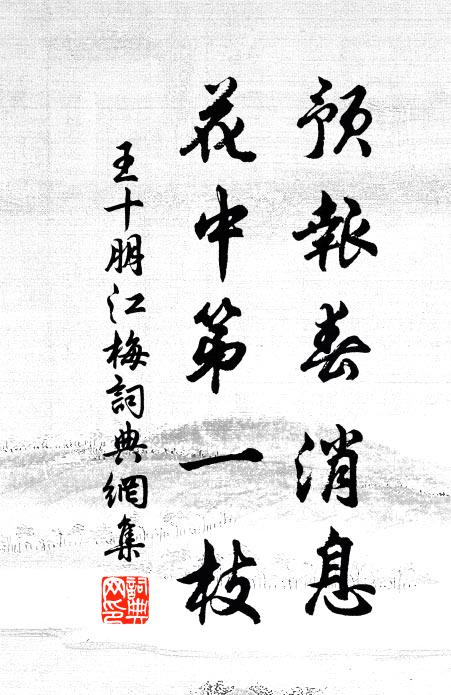 預報春消息
花中第一枝
王十朋江梅詞典網集
詞典
网印